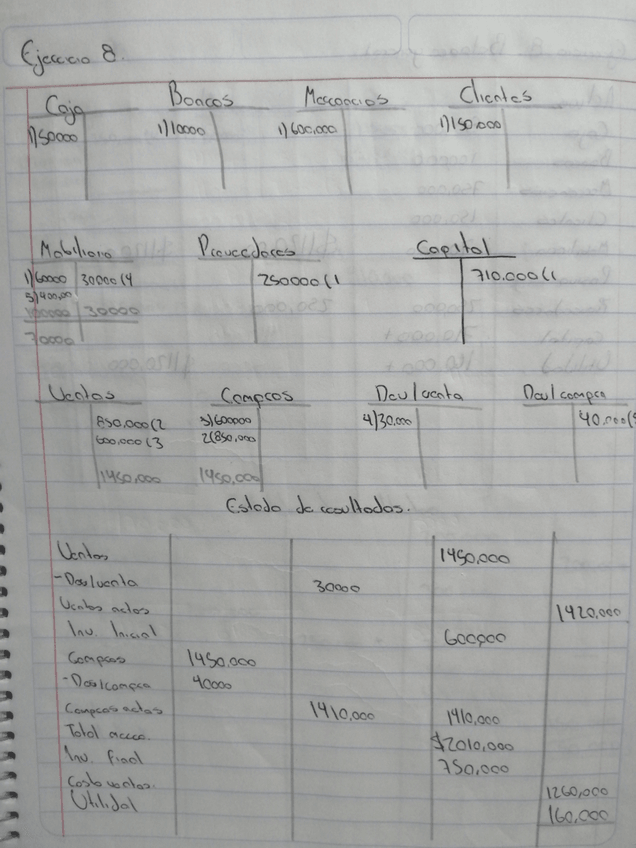 Ejercicio 8.
Caja Bancos Mercancias Clientes
1)50000 1)10000 1)600,000 1)150,000
Mobiliario Proveedores Capital
1)60000 30000(4 250000(1 710.000(1
5)400,00
100000 30000
70000
Ventas Compras Dev/venta Dev/compra
850,000(2 3)600000 4)30,000 40.000(5
600,000(3 2(850,000
1450,000 1450,000
Estado de resultados.
Ventas 1450,000
-Dev/venta 30000
Ventas netas 1420,000
Inv. Inicial 600,000
Compras 1450.000
-Dev/compra 40000
Compras netas 1410,000 1410,000
Total merc. $2010,000
Inv. final 750,000
Costo ventas. 1260,000
Utilidad 160,000